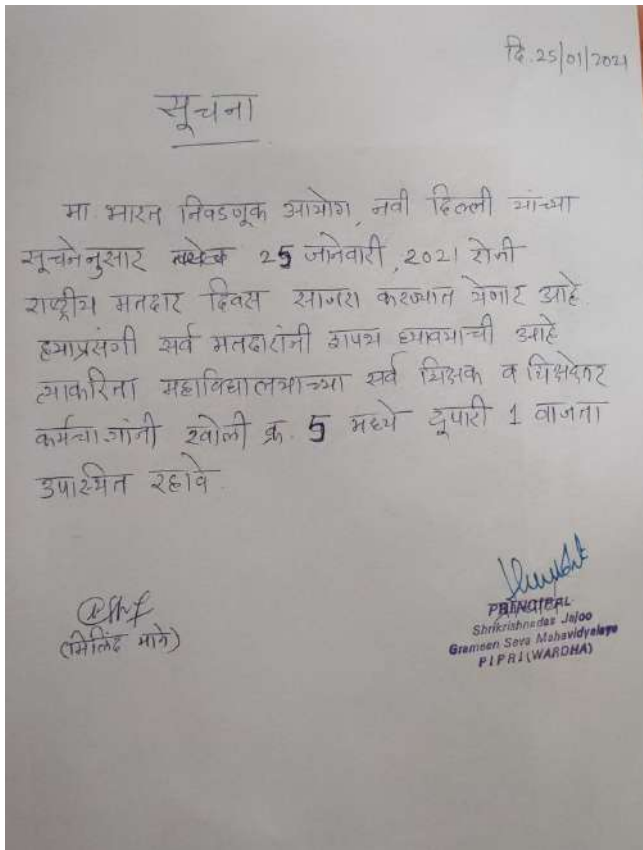 दि. 25/01/2021
सूचना
मा. भारत निवडणूक आयोग, नवी दिल्ली यांच्या
सूचनेनुसार 25 जानेवारी, 2021 रोजी
राष्ट्रीय मतदार दिवस साजरा करण्यात येणार आहे.
ह्याप्रसंगी सर्व मतदारांनी शपथ घ्यावयाची आहे
त्याकरिता महाविद्यालयाच्या सर्व शिक्षक व शिक्षकेतर
कर्मचाऱ्यांनी खोली क्र. 5 मध्ये दुपारी 1 वाजता
उपस्थित रहावे.
(मिलिंद माने)
PRINCIPAL
Shrikrishnadas Jajoo
Grameen Seva Mahavidyalaya
PIPRI (WARDHA)